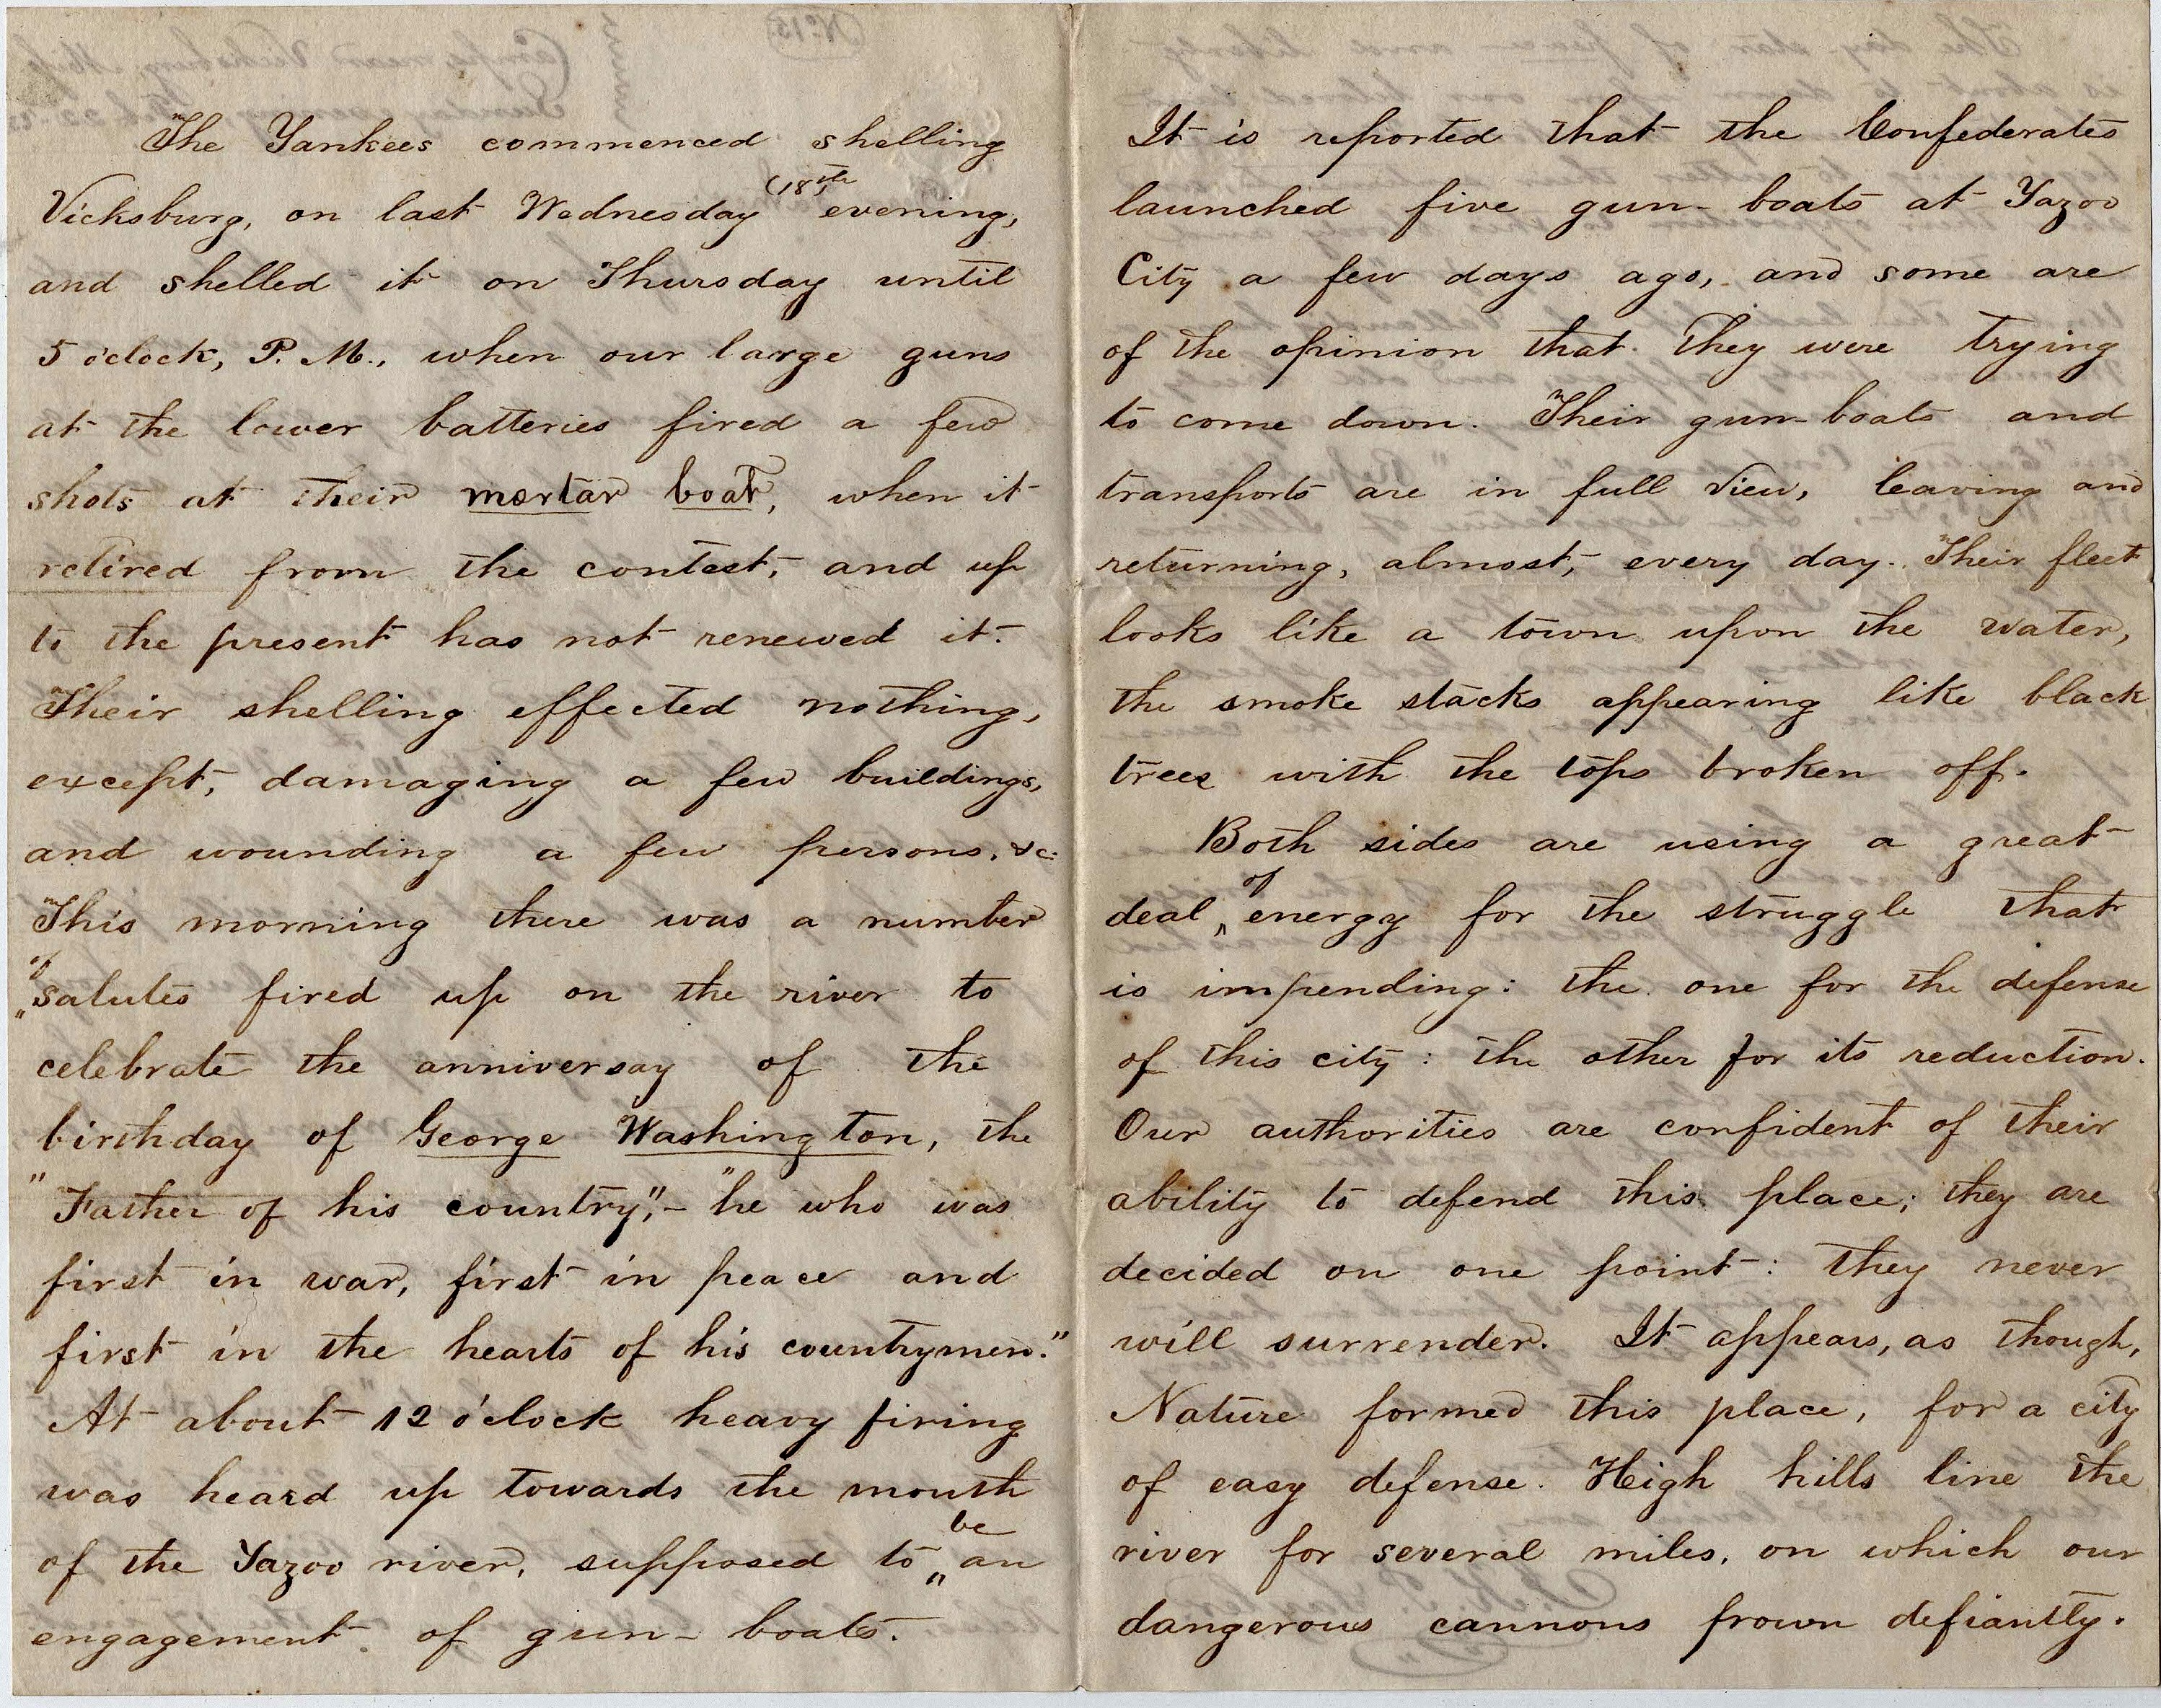 The Yankees commenced shelling
Vicksburg, on last Wednesday (18th) evening,
and shelled it on Thursday until
5 o'clock, P. M., when our large guns
at the lower batteries fired a few
shots at their mortar boat, when it
retired from the contest, and up
to the present has not renewed it.
Their shelling effected nothing,
except, damaging a few buildings,
and wounding a few persons, &c.
This morning there was a number
of salutes fired up on the river to
celebrate the anniversay of the
birthday of George Washington, the
"Father of his country", - "he who was
first in war, first in peace and
first in the hearts of his countrymen."
At about 12 o'clock heavy firing
was heard up towards the mouth
of the Yazoo river, supposed to be an
engagement of gun-boats.
It is reported that the Confederates
launched five gun-boats at Yazoo
City a few days ago, and some are
of the opinion that they were trying
to come down. Their gun-boats and
transports are in full view, leaving and
returning, almost, every day. Their fleet
looks like a town upon the water,
the smoke stacks appearing like black
trees with the tops broken off.
Both sides are using a great
deal of energy for the struggle that
is impending: the one for the defense
of this city: the other for its reduction.
Our authorities are confident of their
ability to defend this place; they are
decided on one point: they never
will surrender. It appears, as though,
Nature formed this place, for a city
of easy defense. High hills line the
river for several miles, on which our
dangerous cannons frown defiantly.